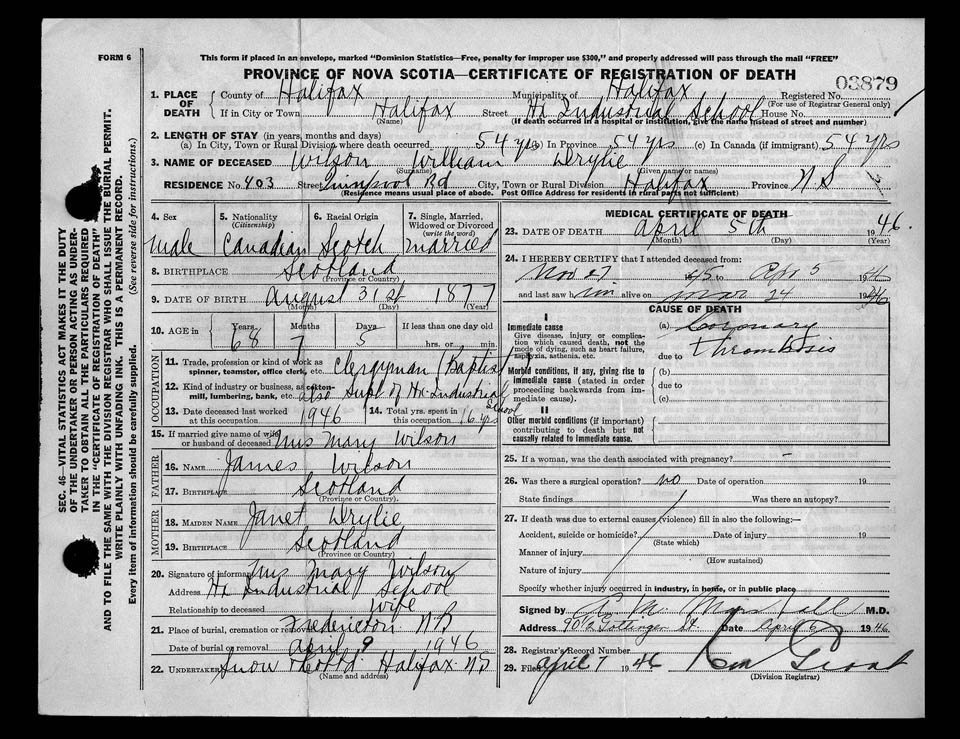 FORM 6
This form if placed in an envelope, marked "Dominion Statistics—Free, penalty for improper use $300," and properly addressed will pass through the mail "FREE"
PROVINCE OF NOVA SCOTIA—CERTIFICATE OF REGISTRATION OF DEATH
03879
1. PLACE OF DEATH
County of Halifax Municipality of Halifax Registered No.
(For use of Registrar General only)
If in City or Town Halifax Street Hx Industrial School House No.
(Name) (If death occurred in a hospital or institution, give the name instead of street and number)
2. LENGTH OF STAY (in years, months and days)
(a) In City, Town or Rural Division where death occurred 54 yrs (b) In Province 54 yrs (c) In Canada (if immigrant) 54 yrs
3. NAME OF DECEASED Wilson William Drylie
(Surname) (Given name or names)
RESIDENCE No. 403 Street Rd City, Town or Rural Division Halifax Province N.S
(Residence means usual place of abode. Post Office Address for residents in rural parts not sufficient)
SEC. 46—VITAL STATISTICS ACT MAKES IT THE DUTY
OF THE UNDERTAKER OR PERSON ACTING AS UNDER-
TAKER TO OBTAIN ALL THE PARTICULARS REQUIRED
IN THE "CERTIFICATE OF REGISTRATION OF DEATH"
AND TO FILE THE SAME WITH THE DIVISION REGISTRAR WHO SHALL ISSUE THE BURIAL PERMIT.
WRITE PLAINLY WITH UNFADING INK. THIS IS A PERMANENT RECORD.
Every item of information should be carefully supplied. (See reverse side for instructions.)
4. Sex 5. Nationality 6. Racial Origin 7. Single, Married,
(Citizenship) Widowed or Divorced
(write the word)
Male Canadian Scotch Married
8. BIRTHPLACE Scotland
(Province or Country)
9. DATE OF BIRTH August 31st 1877
(Month) (Day) (Year)
10. AGE in Years Months Days If less than one day old
68 7 5 hrs. or min.
OCCUPATION
11. Trade, profession or kind of work as
spinner, teamster, office clerk, etc. Clergyman (Baptist)
12. Kind of industry or business, as cotton-
mill, lumbering, bank, etc. also Supt of Hx Industrial School
13. Date deceased last worked
at this occupation 1946
14. Total yrs. spent in
this occupation 16 yrs
15. If married give name of wife
or husband of deceased Mrs Mary Wilson
FATHER
16. NAME James Wilson
17. BIRTHPLACE Scotland
(Province or Country)
MOTHER
18. MAIDEN NAME Janet Drylie
19. BIRTHPLACE Scotland
(Province or Country)
20. Signature of informant Mrs Mary Wilson
Address Hx Industrial School
Relationship to deceased wife
21. Place of burial, cremation or removal Fredericton NB
Date of burial or removal April 9 1946
22. UNDERTAKER Snow & Co Ltd Halifax NS
(Name and address)
MEDICAL CERTIFICATE OF DEATH
23. DATE OF DEATH April 5th 1946.
(Month) (Day) (Year)
24. I HEREBY CERTIFY that I attended deceased from:
Nov 27 1945 to Apr 5 1946
and last saw him alive on Mar 24 1946
CAUSE OF DEATH
I
Immediate cause
Give disease, injury or complica-
tion which caused death, not the
mode of dying, such as heart failure,
asphyxia, asthenia, etc.
(a) Coronary
due to Thrombosis
Morbid conditions, if any, giving rise to
immediate cause (stated in order
proceeding backwards from im-
mediate cause).
(b)
due to
(c)
II
Other morbid conditions (if important)
contributing to death but not
causally related to immediate cause.
25. If a woman, was the death associated with pregnancy? -
26. Was there a surgical operation? no Date of operation 19
State findings Was there an autopsy?
27. If death was due to external causes (violence) fill in also the following:—
Accident, suicide or homicide? Date of injury 19
(State which)
Manner of injury
(How sustained)
Nature of injury
Specify whether injury occurred in industry, in home, or in public place
Signed by M. Marshall M.D.
Address 90½ Gottingen St. Date April 6 1946
28. Registrar's Record Number
29. Filed April 7 1946 Grant
(Division Registrar)